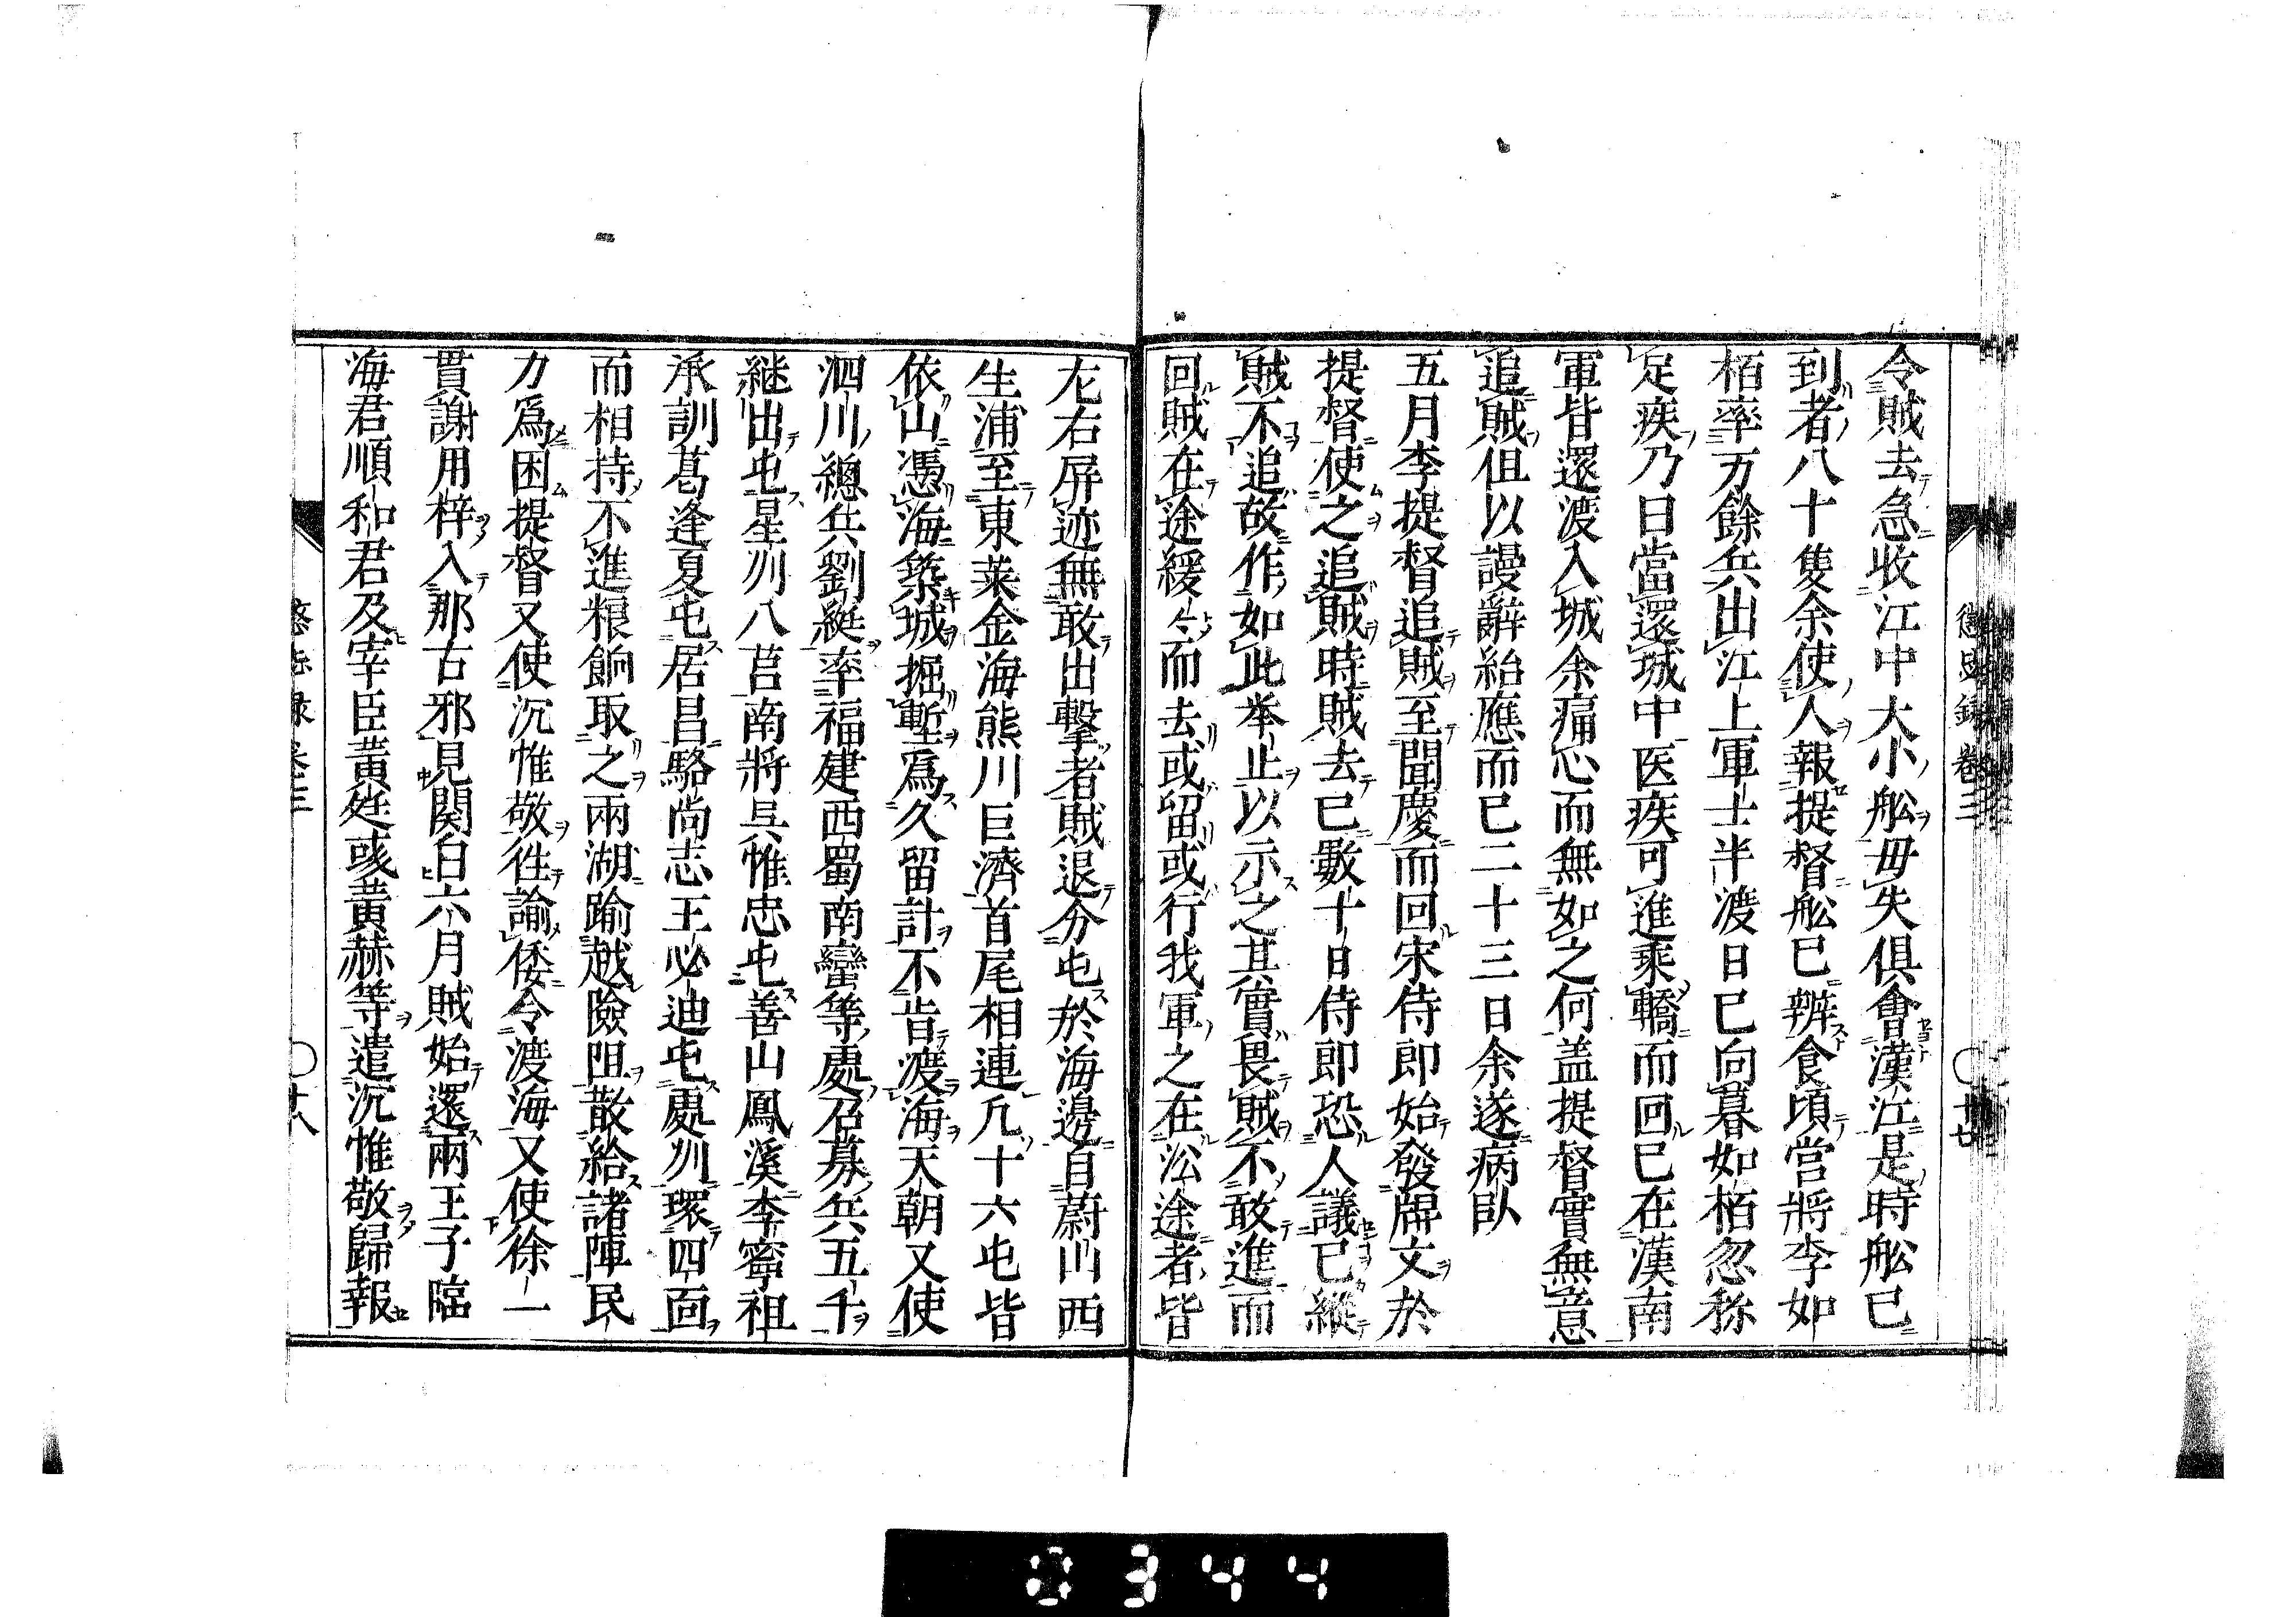 令賊去急收江中大小舩毋失俱會漢江是時舩已
到者八十隻余使人報提督舩已辨食頃営將李如
栢率万餘兵出江上軍士半渡日已向暮如栢忽称
足疾乃曰當還城中医疾可進乗轎而回已在漢南
軍皆還渡入城余痛心而無如之何盖提督實無意
追賊但以謾辭紿應而已二十三日余遂病卧
五月李提督追賊至聞慶而回宋侍郎始發牌文於
提督使之追賊時賊去已數十日侍郎恐人議已縱
賊不追故作如此举止以示之其實畏賊不敢進而
回賊在途緩々而去或留或行我軍之在沿途者皆
左右屏迹無敢出擊者賊退分屯於海邊自蔚山西
生浦至東莱金海熊川巨濟首尾相連凡十六屯皆
依山憑海築城掘塹爲久留計不肯渡海天朝又使
泗川總兵劉綎率福建西蜀南蠻等處召募兵五千
継出屯星州八莒南將呉惟忠屯善山鳳溪李寧祖
承訓葛逢夏屯居昌駱尚志王必迪屯處州環四面
而相持不進粮餉取之兩湖踰越險阻散給諸陣民
力爲困提督又使沉惟敬徃諭倭令渡海又使徐一
貫謝用梓入那古邪見関白六月賊始還兩王子臨
海君順和君及宰臣黃廷彧黃赫等遣沉惟敬歸報
懲毖録 巻三
廿七
懲毖録 巻三
廿八
0344